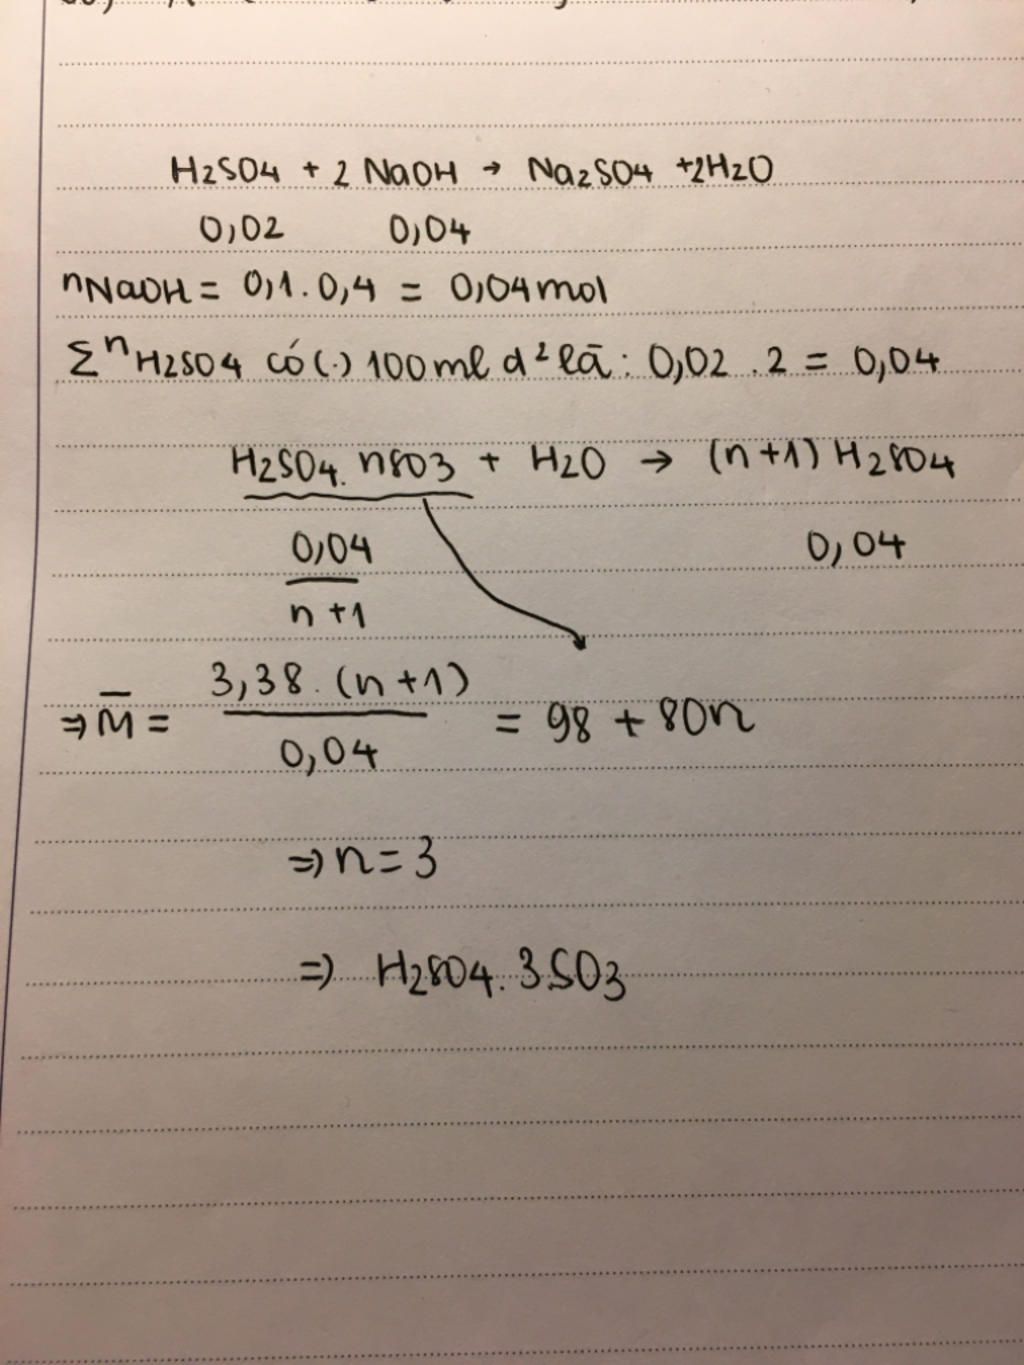 H2SO4 + 2 NaOH → Na2SO4 + 2H2O
0,02 0,04
nNaOH = 0,1 . 0,4 = 0,04 mol
Σ nH2SO4 có (.) 100 ml d² là : 0,02 . 2 = 0,04
H2SO4. nSO3 + H2O → (n+1) H2SO4
0,04 0,04
n +1
3,38 . (n+1)
⇒ M̅ = = 98 + 80n
0,04
⇒ n = 3
⇒ H2SO4. 3SO3